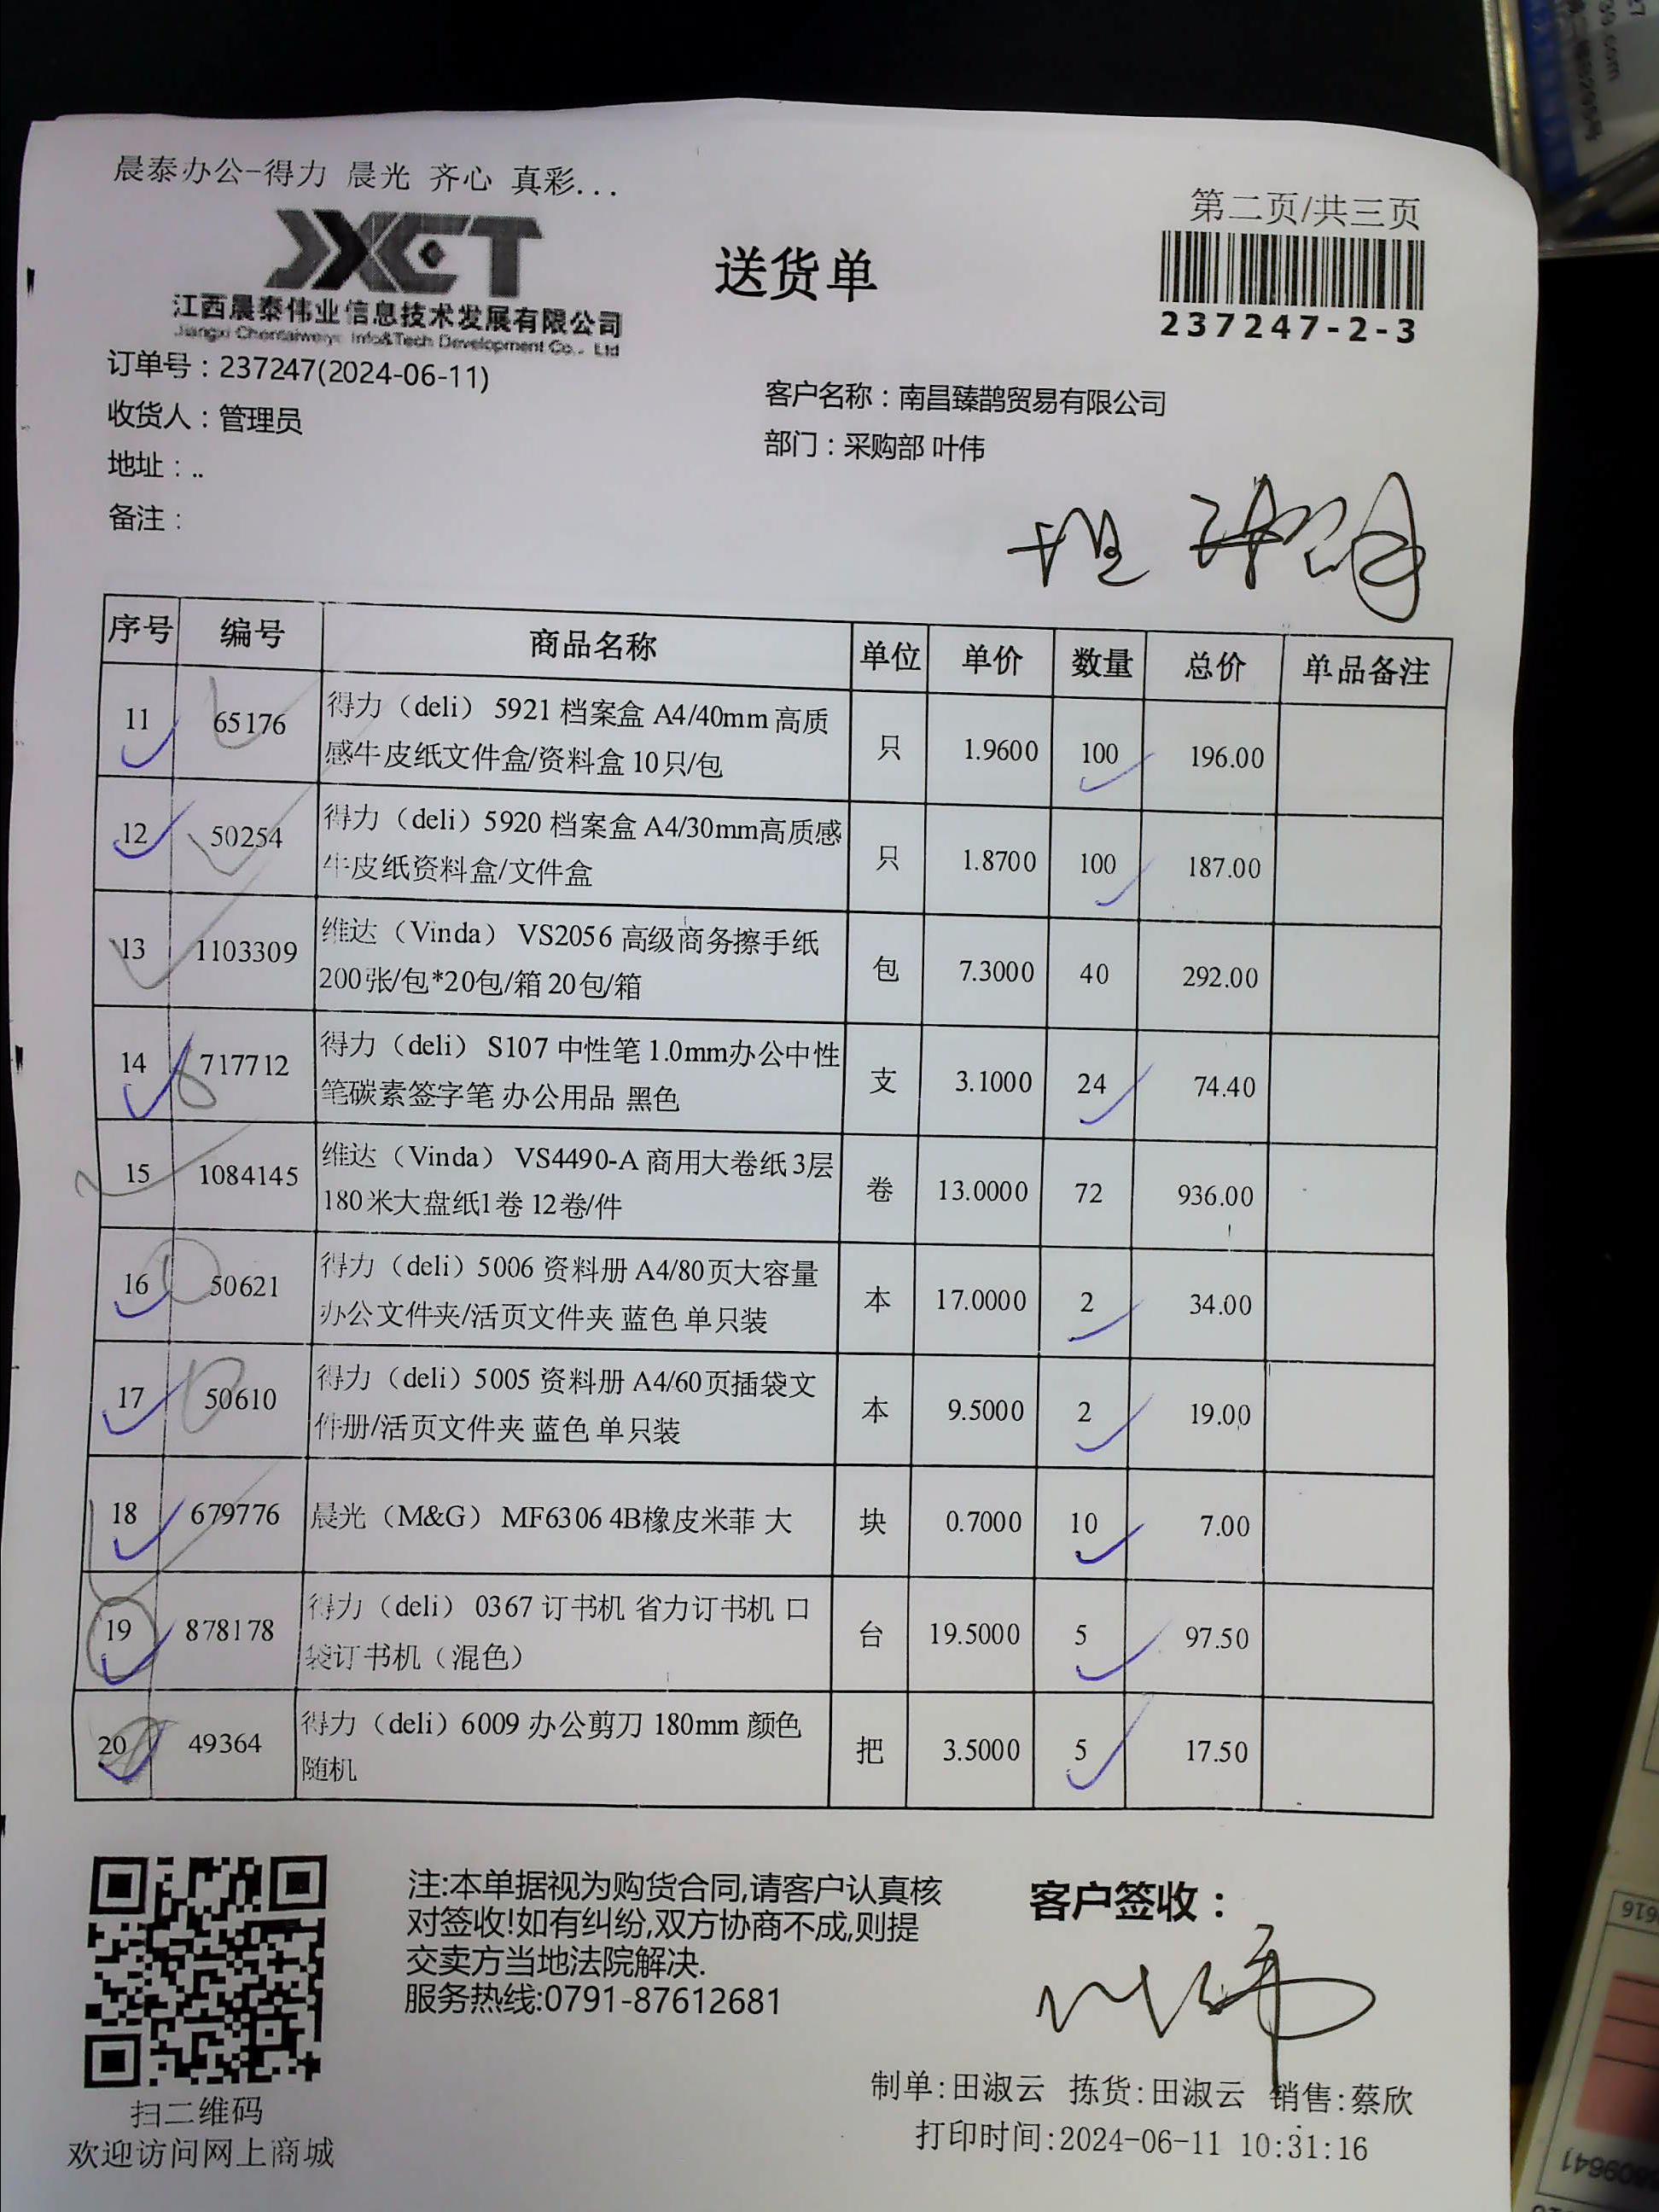 晨泰办公-得力 晨光 齐心 真彩...
第二页/共三页
JXCT
送货单
江西晨泰伟业信息技术发展有限公司
237247-2-3
订单号：237247(2024-06-11)
客户名称：南昌臻鹊贸易有限公司
收货人：管理员
部门：采购部 叶伟
地址：..
备注：
序号 编号 商品名称 单位 单价 数量 总价 单品备注
11 65176 得力（deli） 5921 档案盒 A4/40mm 高质 只 1.9600 100 196.00
感牛皮纸文件盒/资料盒 10只/包
12 50254 得力（deli）5920 档案盒 A4/30mm高质感 只 1.8700 100 187.00
牛皮纸资料盒/文件盒
13 1103309 维达（Vinda） VS2056 高级商务擦手纸 包 7.3000 40 292.00
200张/包*20包/箱 20包/箱
14 717712 得力（deli） S107 中性笔 1.0mm办公中性 支 3.1000 24 74.40
笔碳素签字笔 办公用品 黑色
15 1084145 维达（Vinda） VS4490-A 商用大卷纸 3层 卷 13.0000 72 936.00
180米大盘纸1卷 12卷/件
16 50621 得力（deli）5006 资料册 A4/80页大容量 本 17.0000 2 34.00
办公文件夹/活页文件夹 蓝色 单只装
17 50610 得力（deli）5005 资料册 A4/60页插袋文 本 9.5000 2 19.00
件册/活页文件夹 蓝色 单只装
18 679776 晨光（M&G） MF6306 4B橡皮米菲 大 块 0.7000 10 7.00
19 878178 得力（deli） 0367 订书机 省力订书机 口 台 19.5000 5 97.50
袋订书机（混色）
20 49364 得力（deli）6009 办公剪刀 180mm 颜色 把 3.5000 5 17.50
随机
注:本单据视为购货合同,请客户认真核
对签收!如有纠纷,双方协商不成,则提
交卖方当地法院解决.
服务热线:0791-87612681
客户签收：
叶伟
扫二维码
欢迎访问网上商城
制单:田淑云 拣货:田淑云 销售:蔡欣
打印时间:2024-06-11 10:31:16